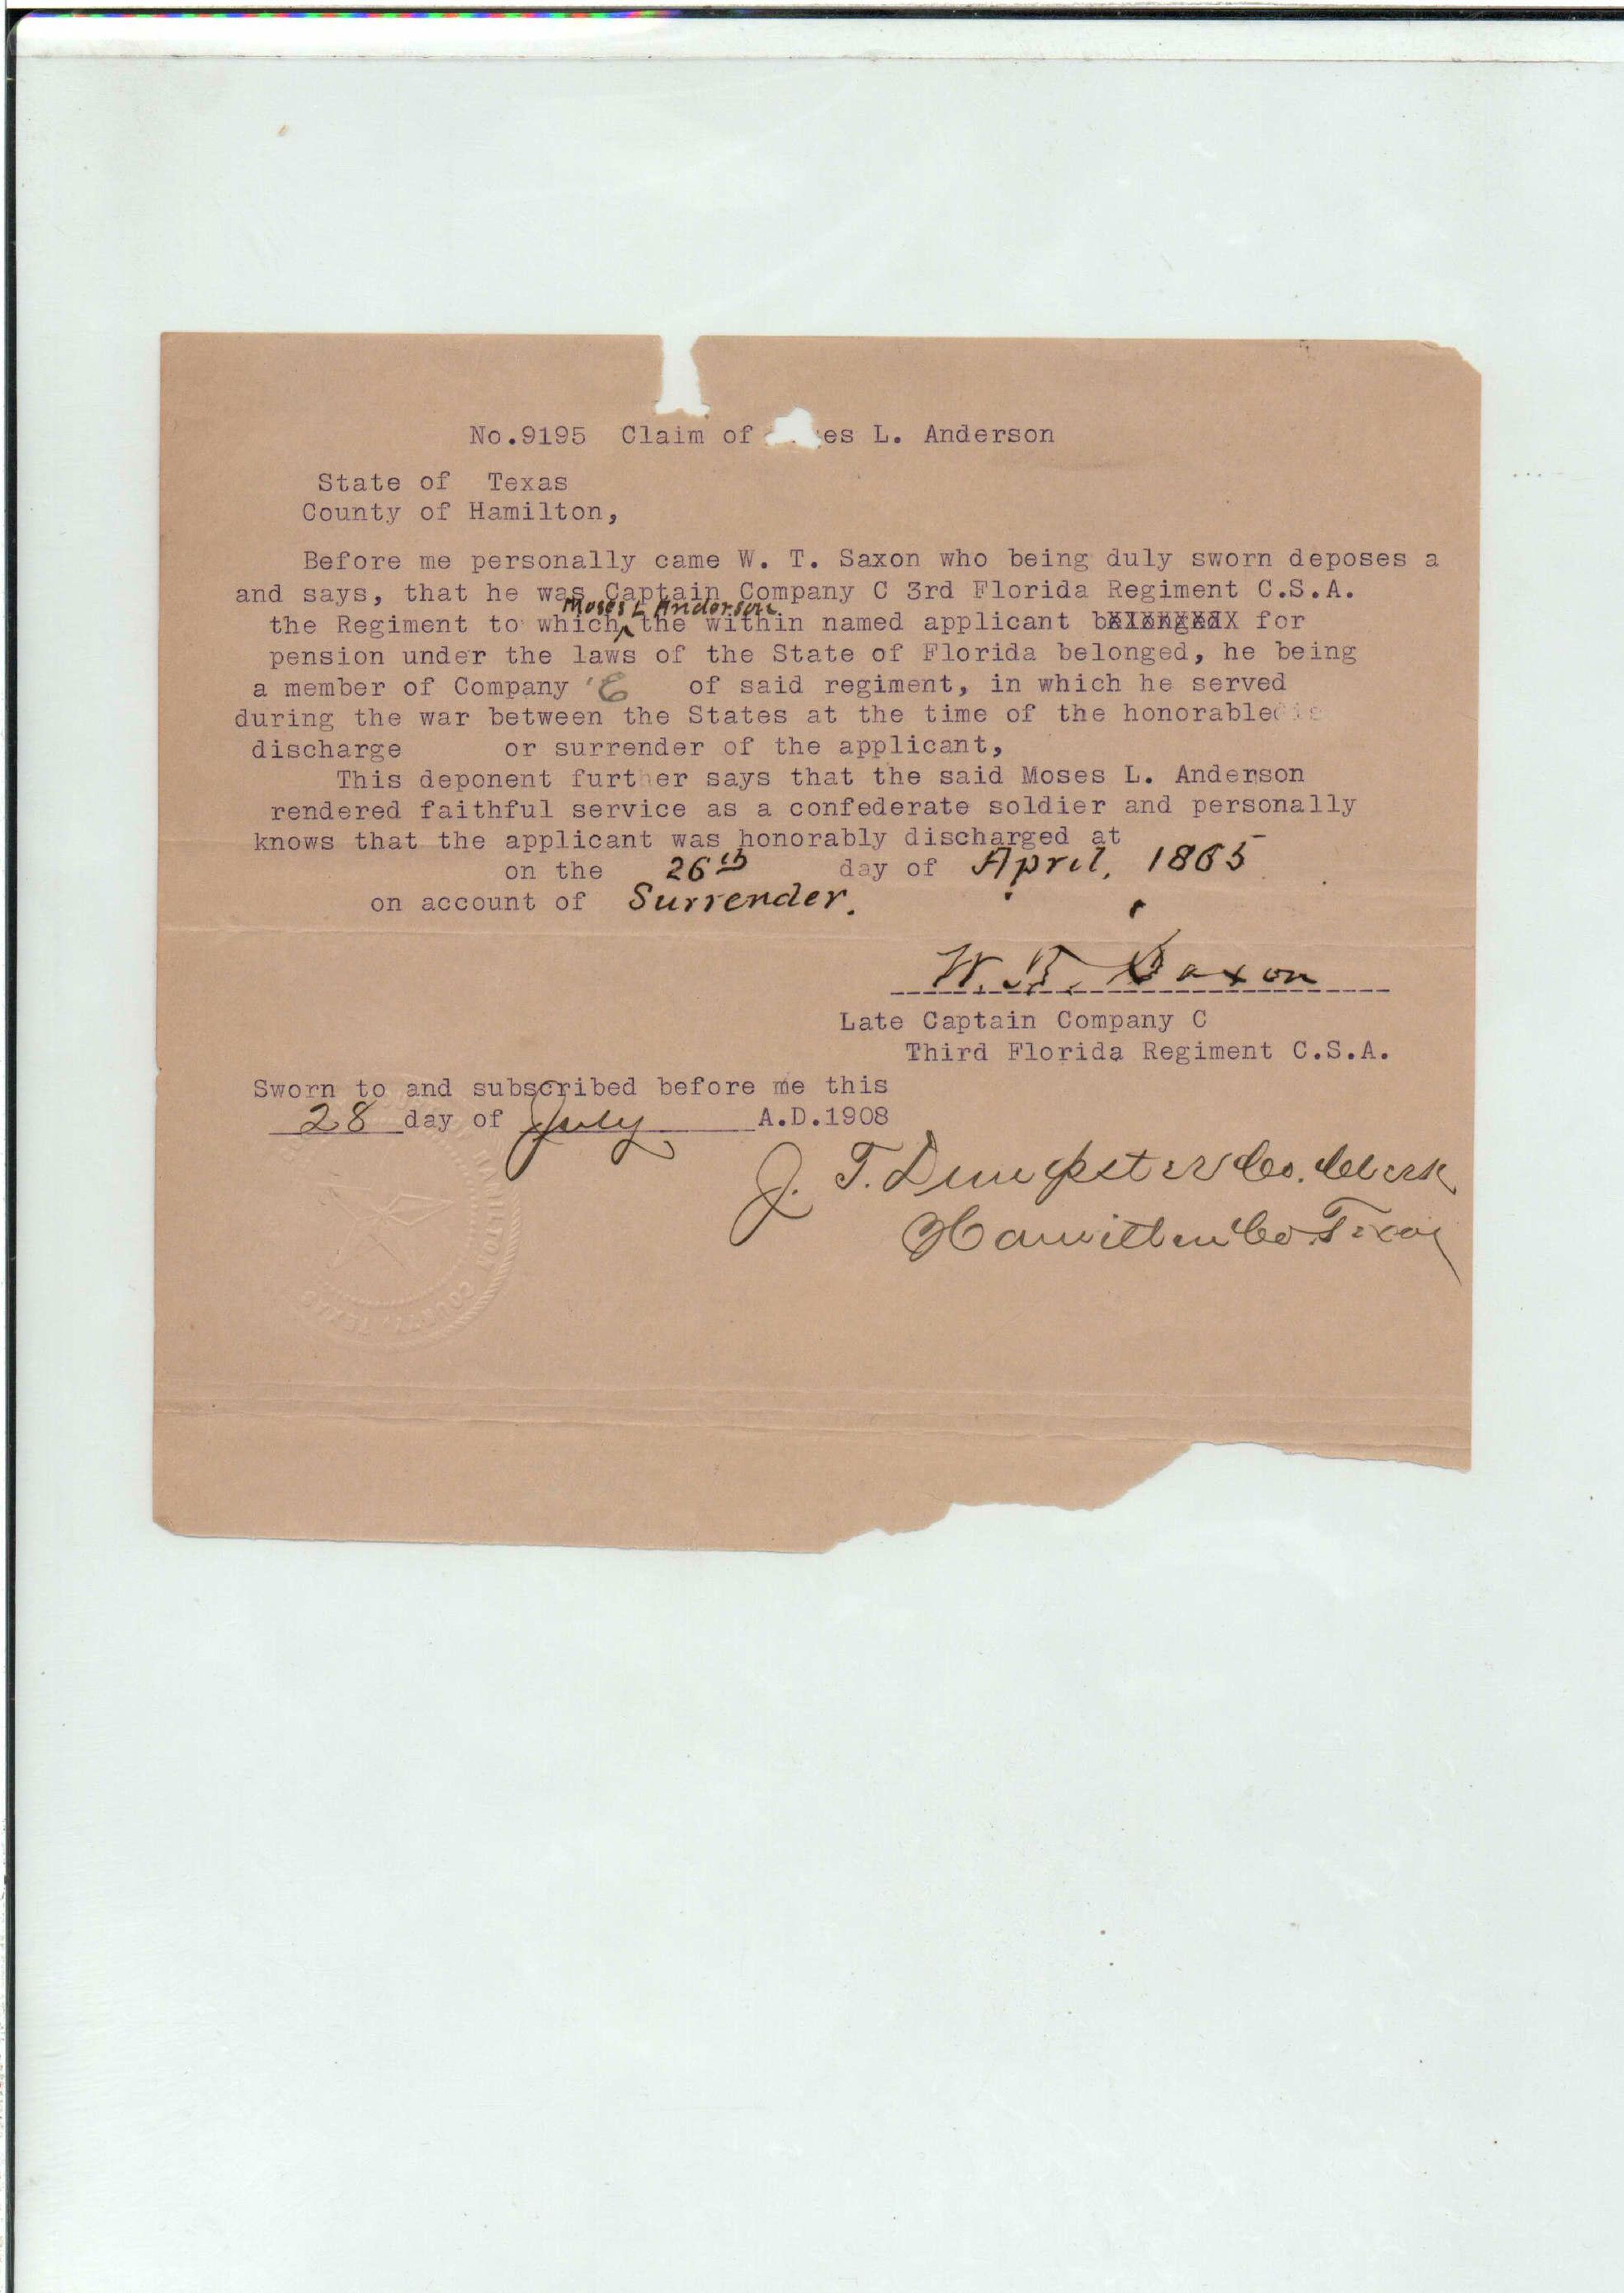 No.9195 Claim of es L. Anderson
State of Texas
County of Hamilton,
Before me personally came W. T. Saxon who being duly sworn deposes a
and says, that he was Captain Company C 3rd Florida Regiment C.S.A.
Moses L Anderson.
the Regiment to which the within named applicant belonged for
pension under the laws of the State of Florida belonged, he being
a member of Company of said regiment, in which he served
during the war between the States at the time of the honorable
discharge or surrender of the applicant,
This deponent further says that the said Moses L. Anderson
rendered faithful service as a confederate soldier and personally
knows that the applicant was honorably discharged at
on the 26th day of April, 1865
on account of Surrender.
W. T. Saxon
Late Captain Company C
Third Florida Regiment C.S.A.
Sworn to and subscribed before me this
28 day of July A.D.1908
J. T. Dempster Co. Clerk
Hamilton Co. Texas
HAMILTON COUNTY, TEXAS